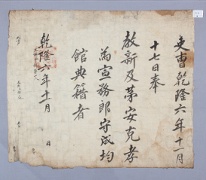 吏曹乾隆六年十一月
十七日奉
教新及第安克孝
為宣務郎守成均
館典籍者
乾隆六年十一月